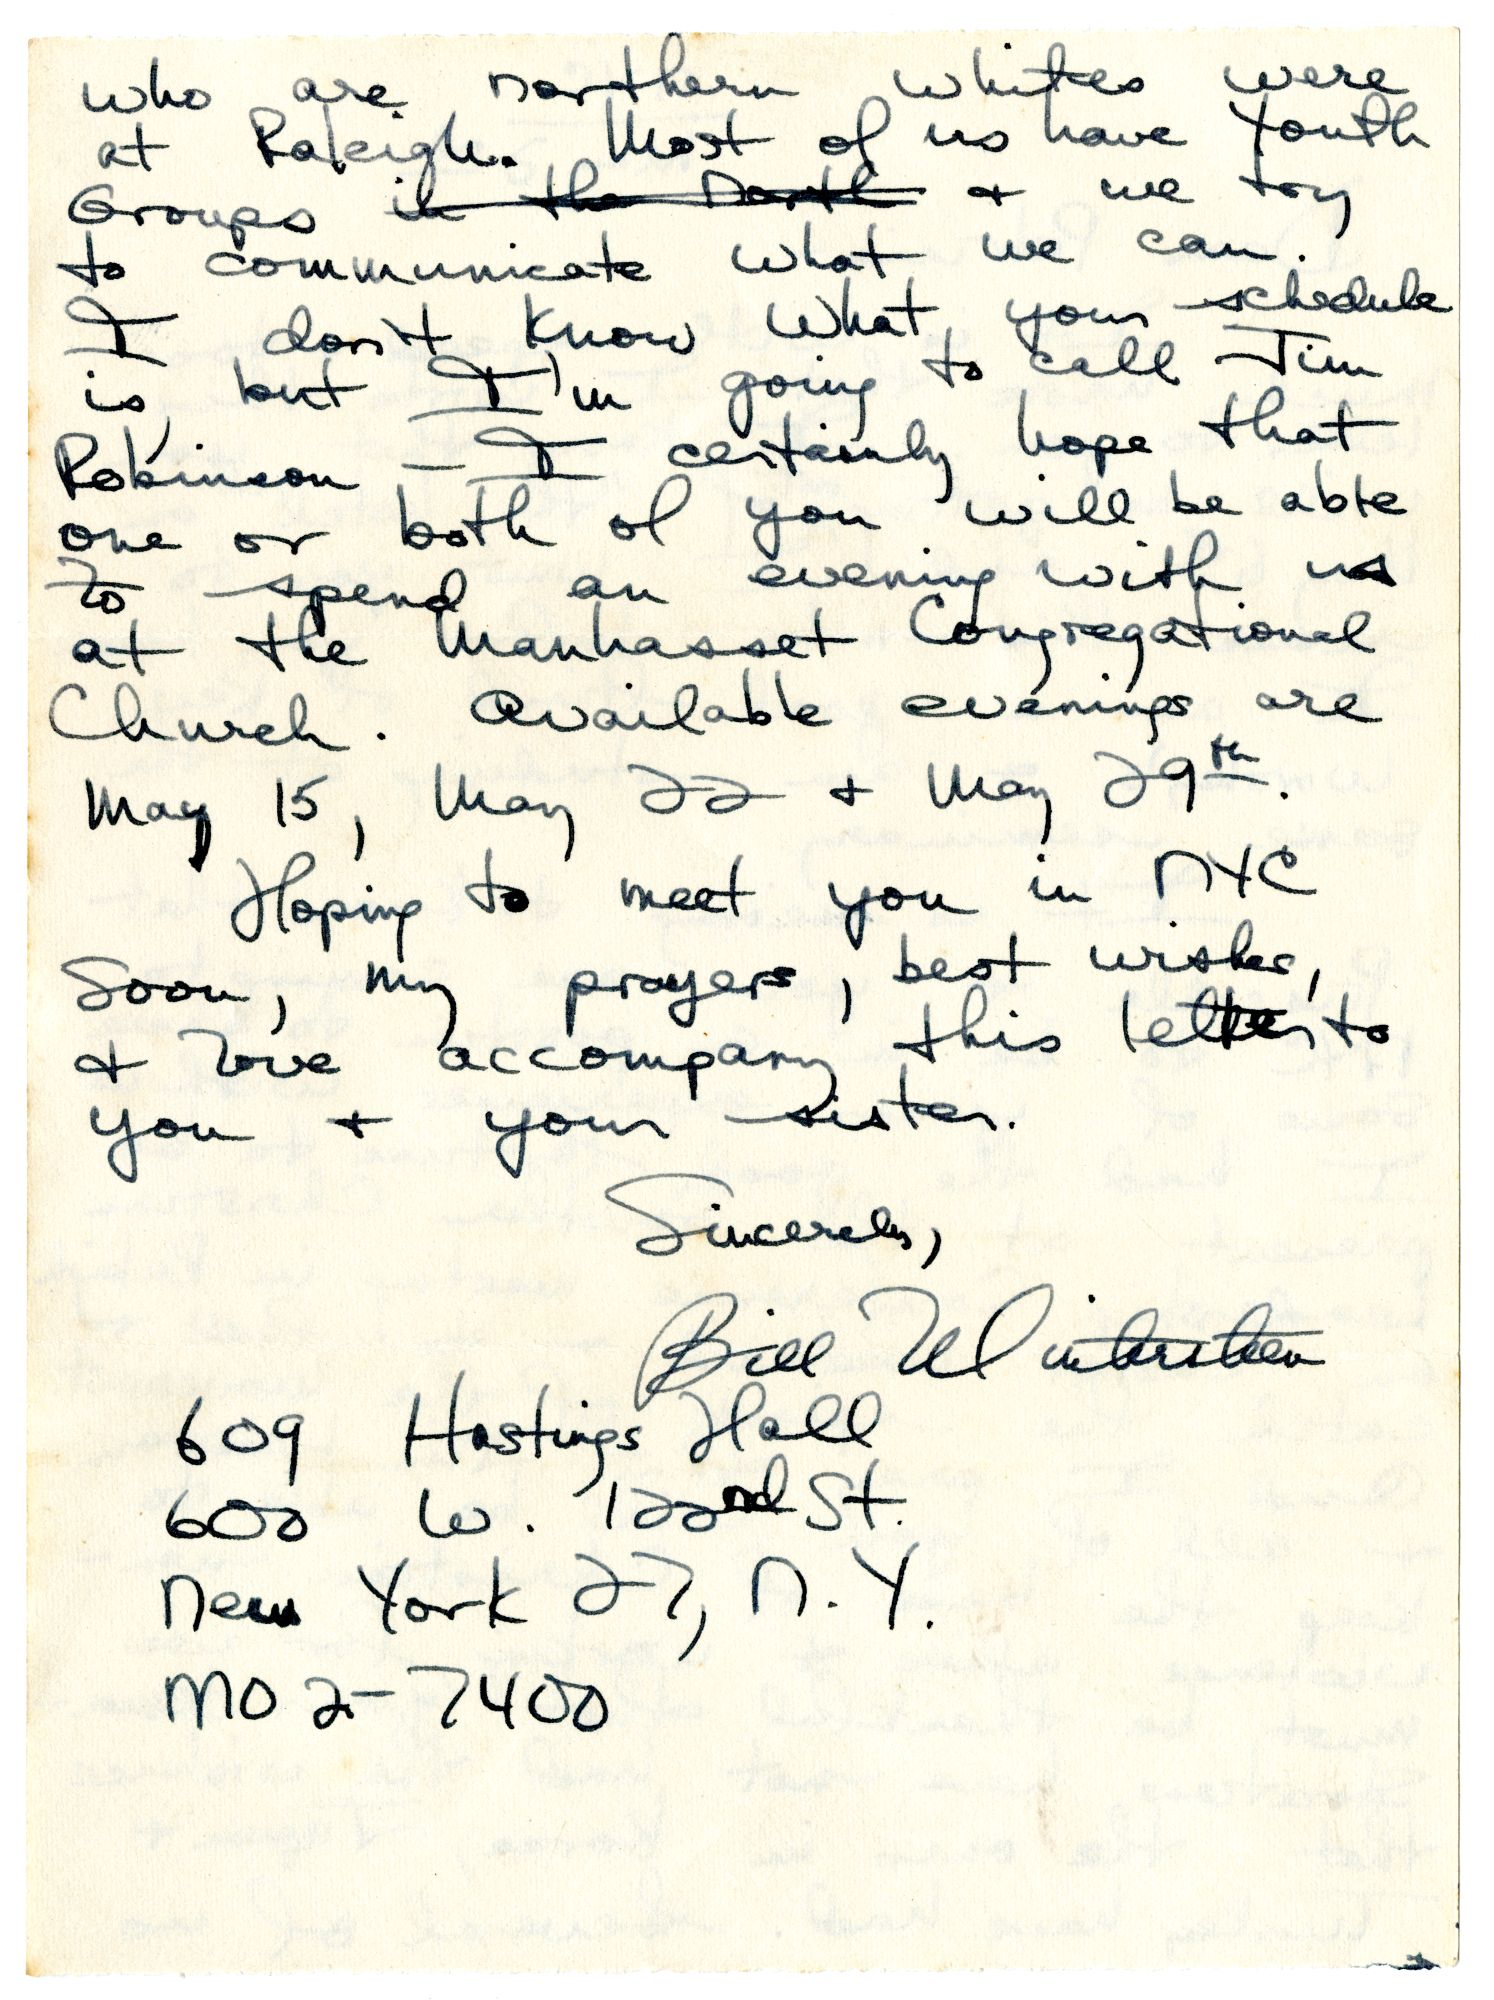 who are northern whites were
at Raleigh. Most of us have Youth
Groups in the North + we try
to communicate what we can.
I don't know what your schedule
is, but I'm going to call Jim
Robinson – I certainly hope that
one or both of you will be able
to spend an evening with us
at the Manhasset Congregational
Church. Available evenings are
May 15, May 22 + May 29th.
Hoping to meet you in NYC
soon, my prayers, best wishes,
+ love accompany this letter to
you + your sister.
Sincerely,
Bill Wintersteen
609 Hastings Hall
600 W. 122nd St.
New York 27, N.Y.
MO 2-7400